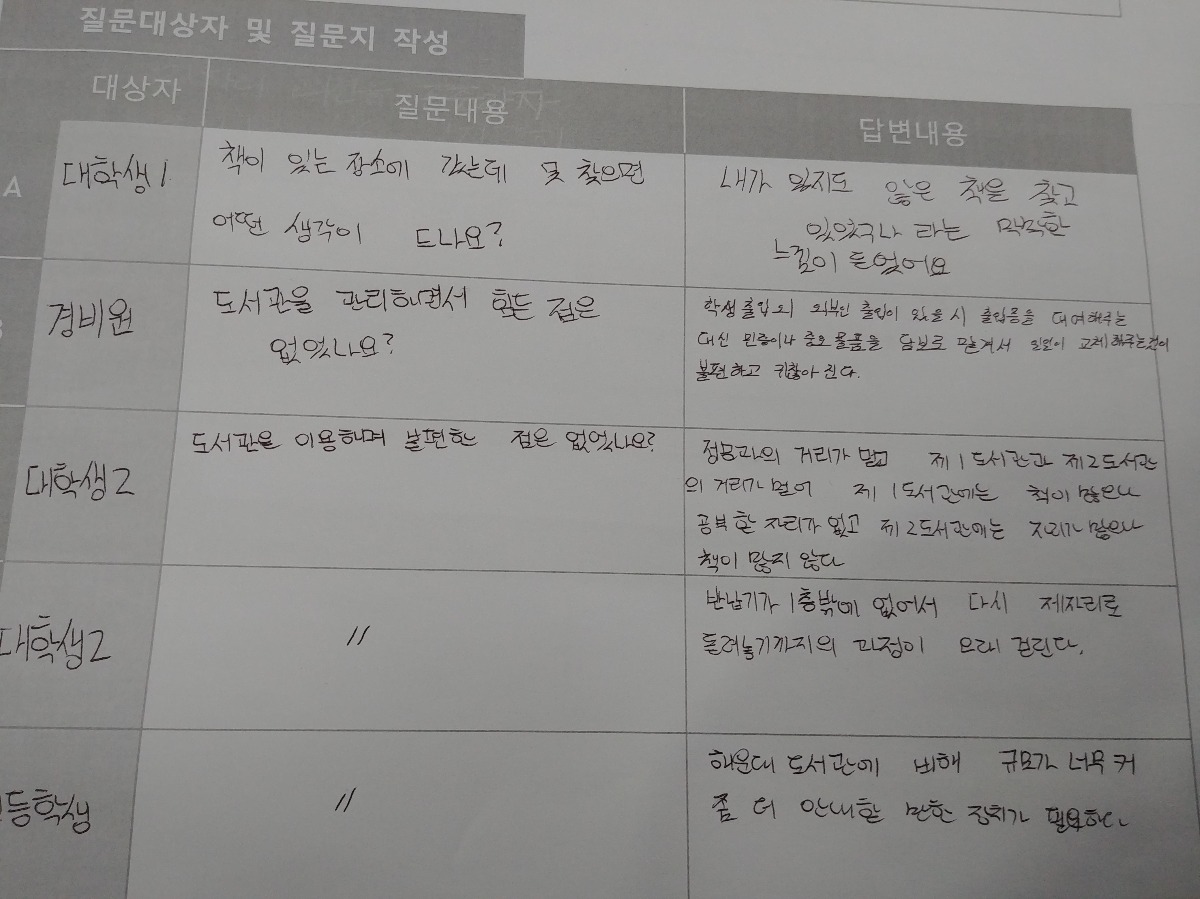 질문대상자 및 질문지 작성
대상자
질문내용
답변내용
A
대학생1
책이 있는 장소에 갔는데 못 찾으면
어떤 생각이 드나요?
내가 있지도 않은 책을 찾고
있었구나 라는 막막한
느낌이 든었어요
경비원
도서관을 관리하면서 힘든 점은
없었나요?
학생출입 외 외부인 출입이 있을 시 출입증을 대여해주는
대신 민증이나 중요 물품을 담보로 맡겨서 일일이 교체해주는것이
불편하고 귀찮아 진다.
대학생2
도서관을 이용하며 불편한 점은 없었나요?
정문과의 거리가 멀고 제1도서관과 제2도서관
의 거리가 멀어 제1도서관에는 책이 많으나
공부할 자리가 없고 제2도서관에는 자리가 많으나
책이 많지 않다
대학생2
//
반납기가 1층밖에 없어서 다시 제자리로
돌려놓기까지의 과정이 오래 걸린다.
등학생
//
해운대 도서관에 비해 규모가 너무 커
좀 더 안내할 만한 장치가 필요하다.